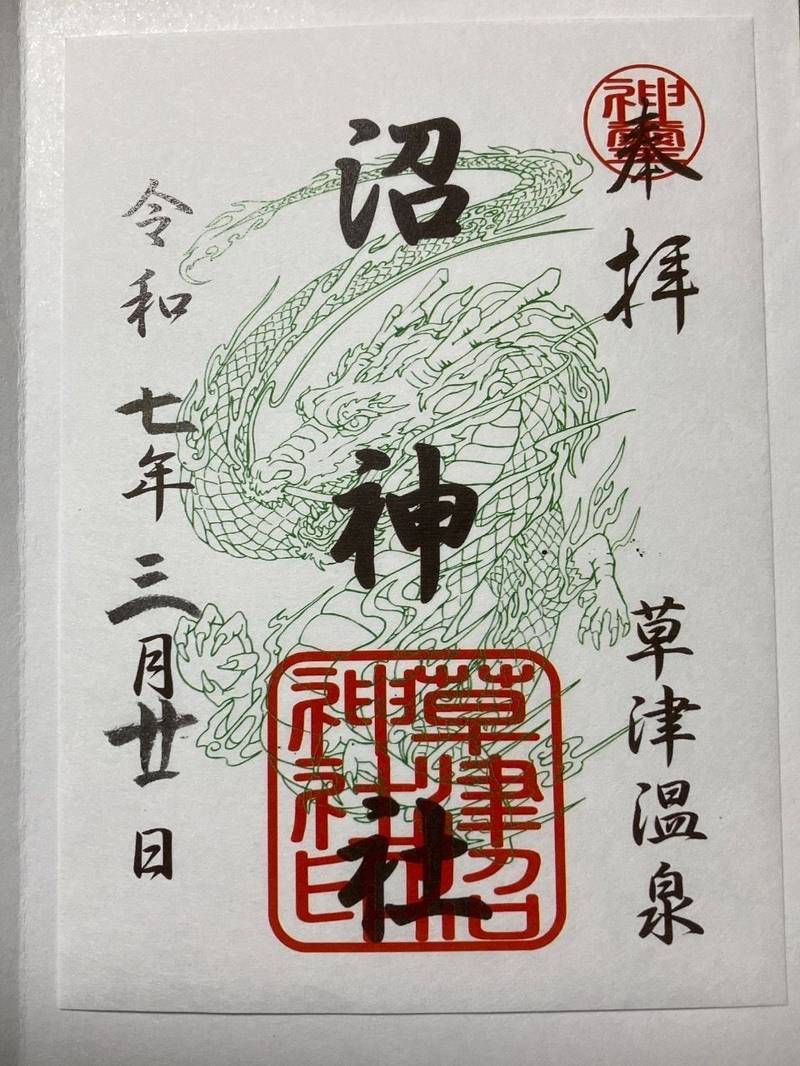 神
奉拝
草津温泉
沼神社
草津沼
神社印
令和七年三月廿日